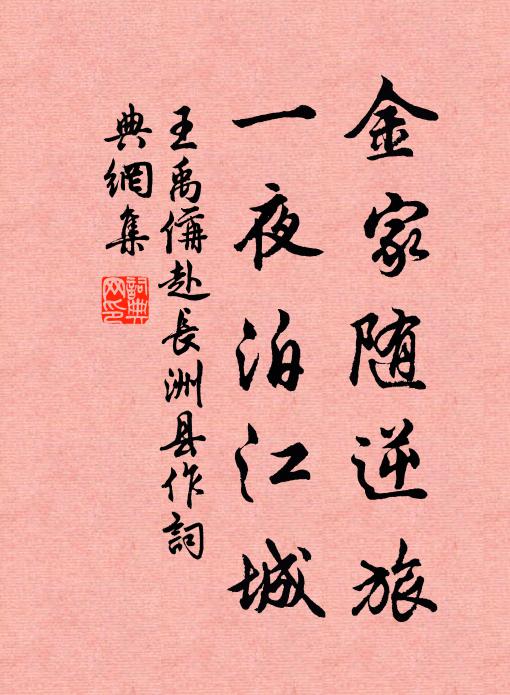 金家随逆旅
一夜泊江城
王禹偁赴長洲县作詞
典網集
詞典网印